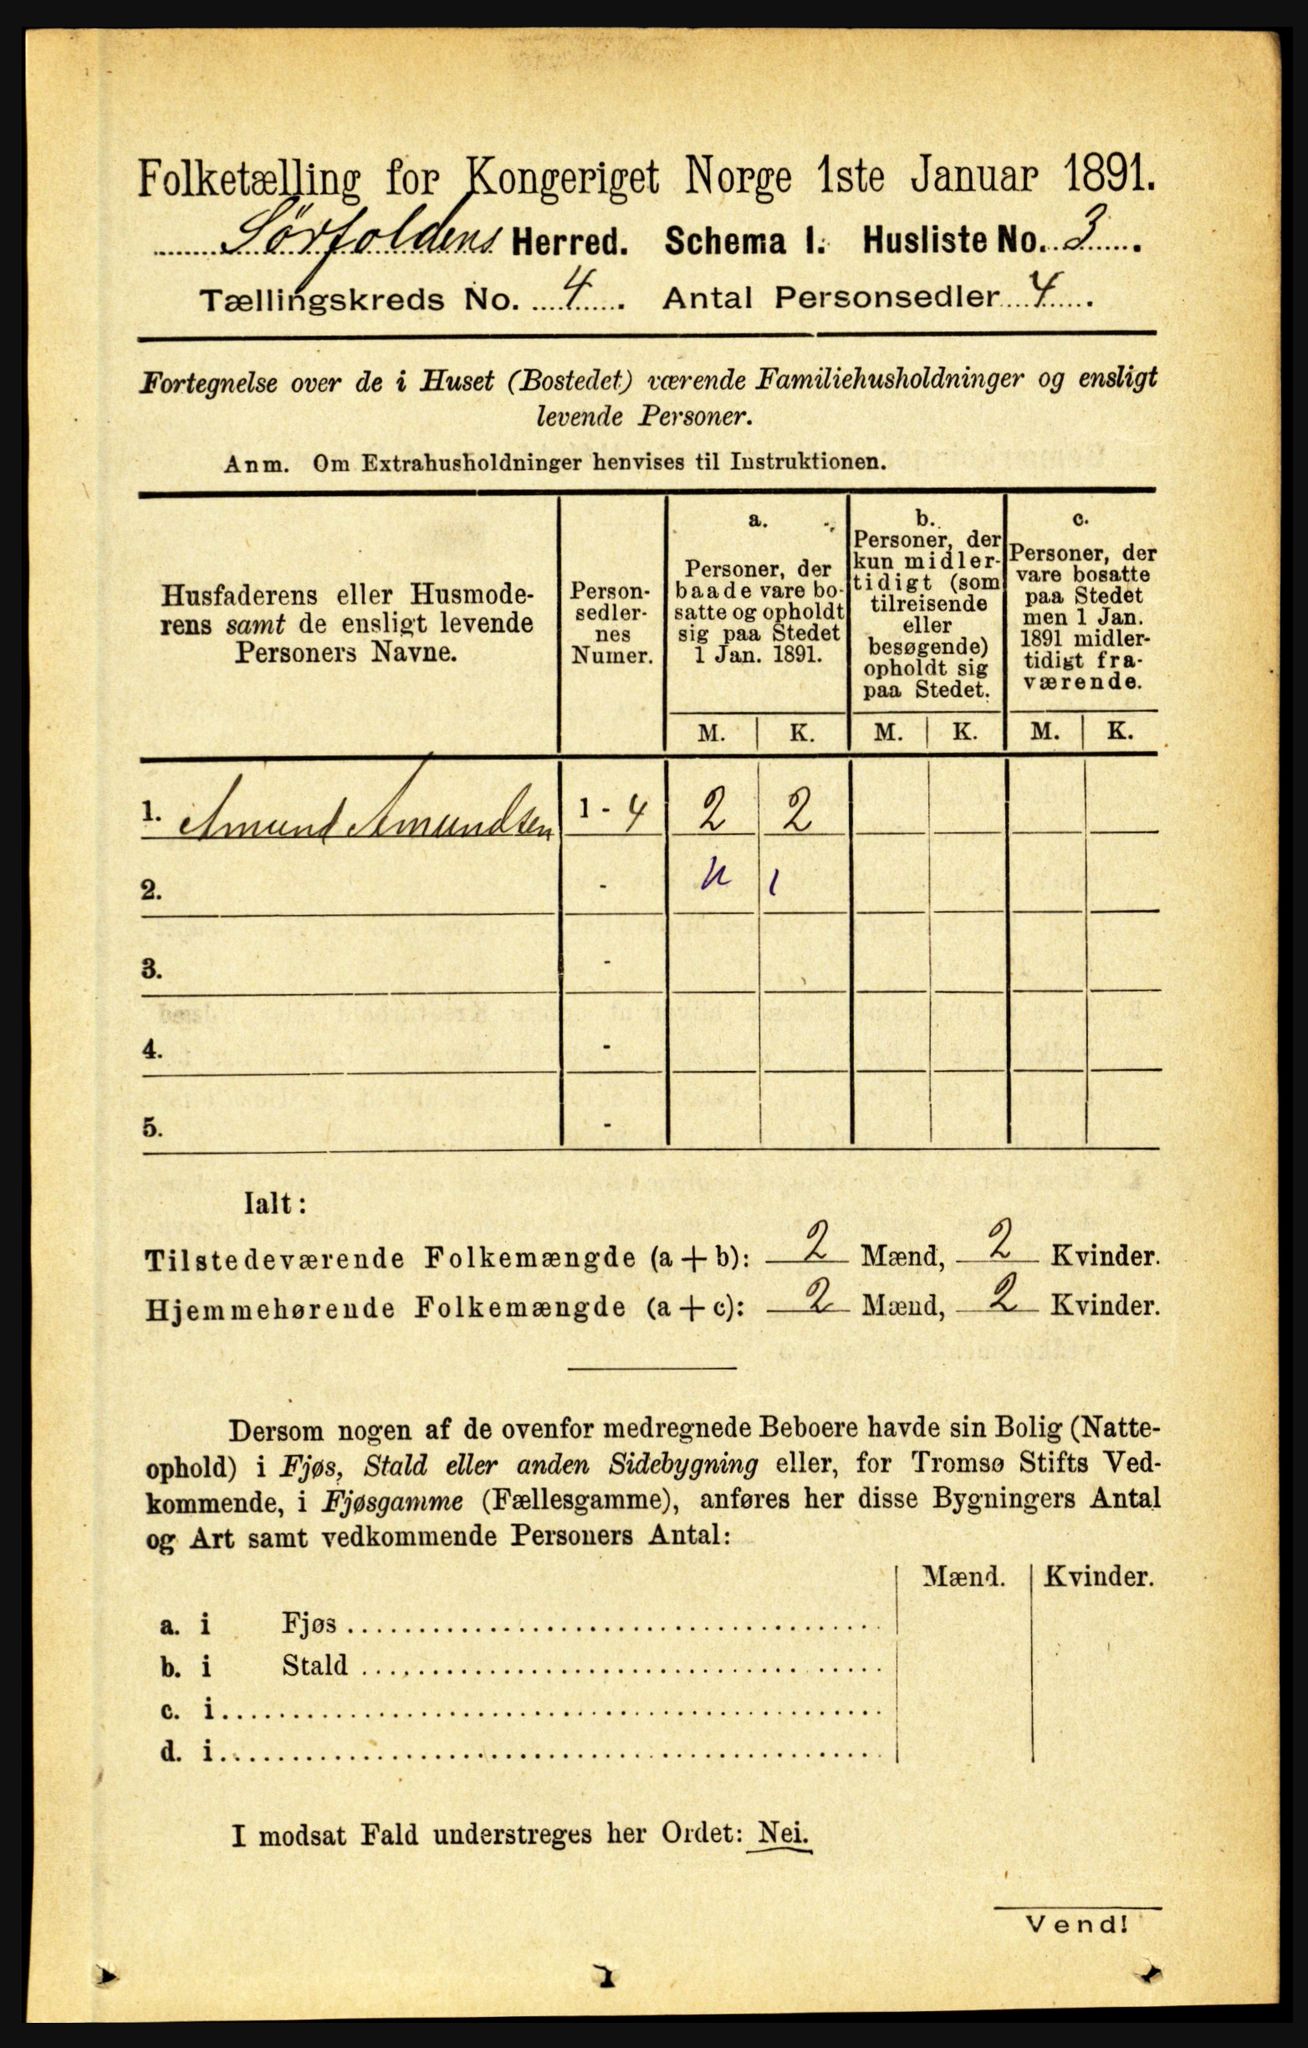 Folketælling for Kongeriget Norge 1ste Januar 1891.
Sørfoldens Herred. Schema I. Husliste No. 3.
Tællingskreds No. 4. Antal Personsedler 4.
Fortegnelse over de i Huset (Bostedet) værende Familiehusholdninger og ensligt
levende Personer.
Anm. Om Extrahusholdninger henvises til Instruktionen.
Husfaderens eller Husmode-
rens samt de ensligt levende
Personers Navne.
Person-
sedler-
nes
Numer.
a.
Personer, der
baade vare bo-
satte og opholdt
sig paa Stedet
1 Jan. 1891.
b.
Personer, der
kun midler-
tidigt (som
tilreisende
eller
besøgende)
opholdt sig
paa Stedet.
c.
Personer, der
vare bosatte
paa Stedet
men 1 Jan.
1891 midler-
tidigt fra-
værende.
M. K. M. K. M. K.
1. Amund Amundsen 1 - 4 2 2
2. -
3. -
4. -
5. -
Ialt:
Tilstedeværende Folkemængde (a + b): 2 Mænd, 2 Kvinder.
Hjemmehørende Folkemængde (a + c): 2 Mænd, 2 Kvinder.
Dersom nogen af de ovenfor medregnede Beboere havde sin Bolig (Natte-
ophold) i Fjøs, Stald eller anden Sidebygning eller, for Tromsø Stifts Ved-
kommende, i Fjøsgamme (Fællesgamme), anføres her disse Bygningers Antal
og Art samt vedkommende Personers Antal:
Mænd. Kvinder.
a. i Fjøs
b. i Stald
c. i
d. i
I modsat Fald understreges her Ordet: Nei.
Vend!